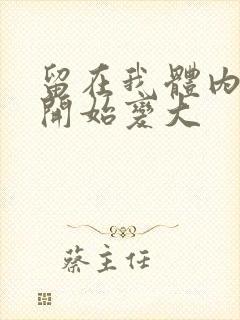 留在我體內
開始變大
蔡主任